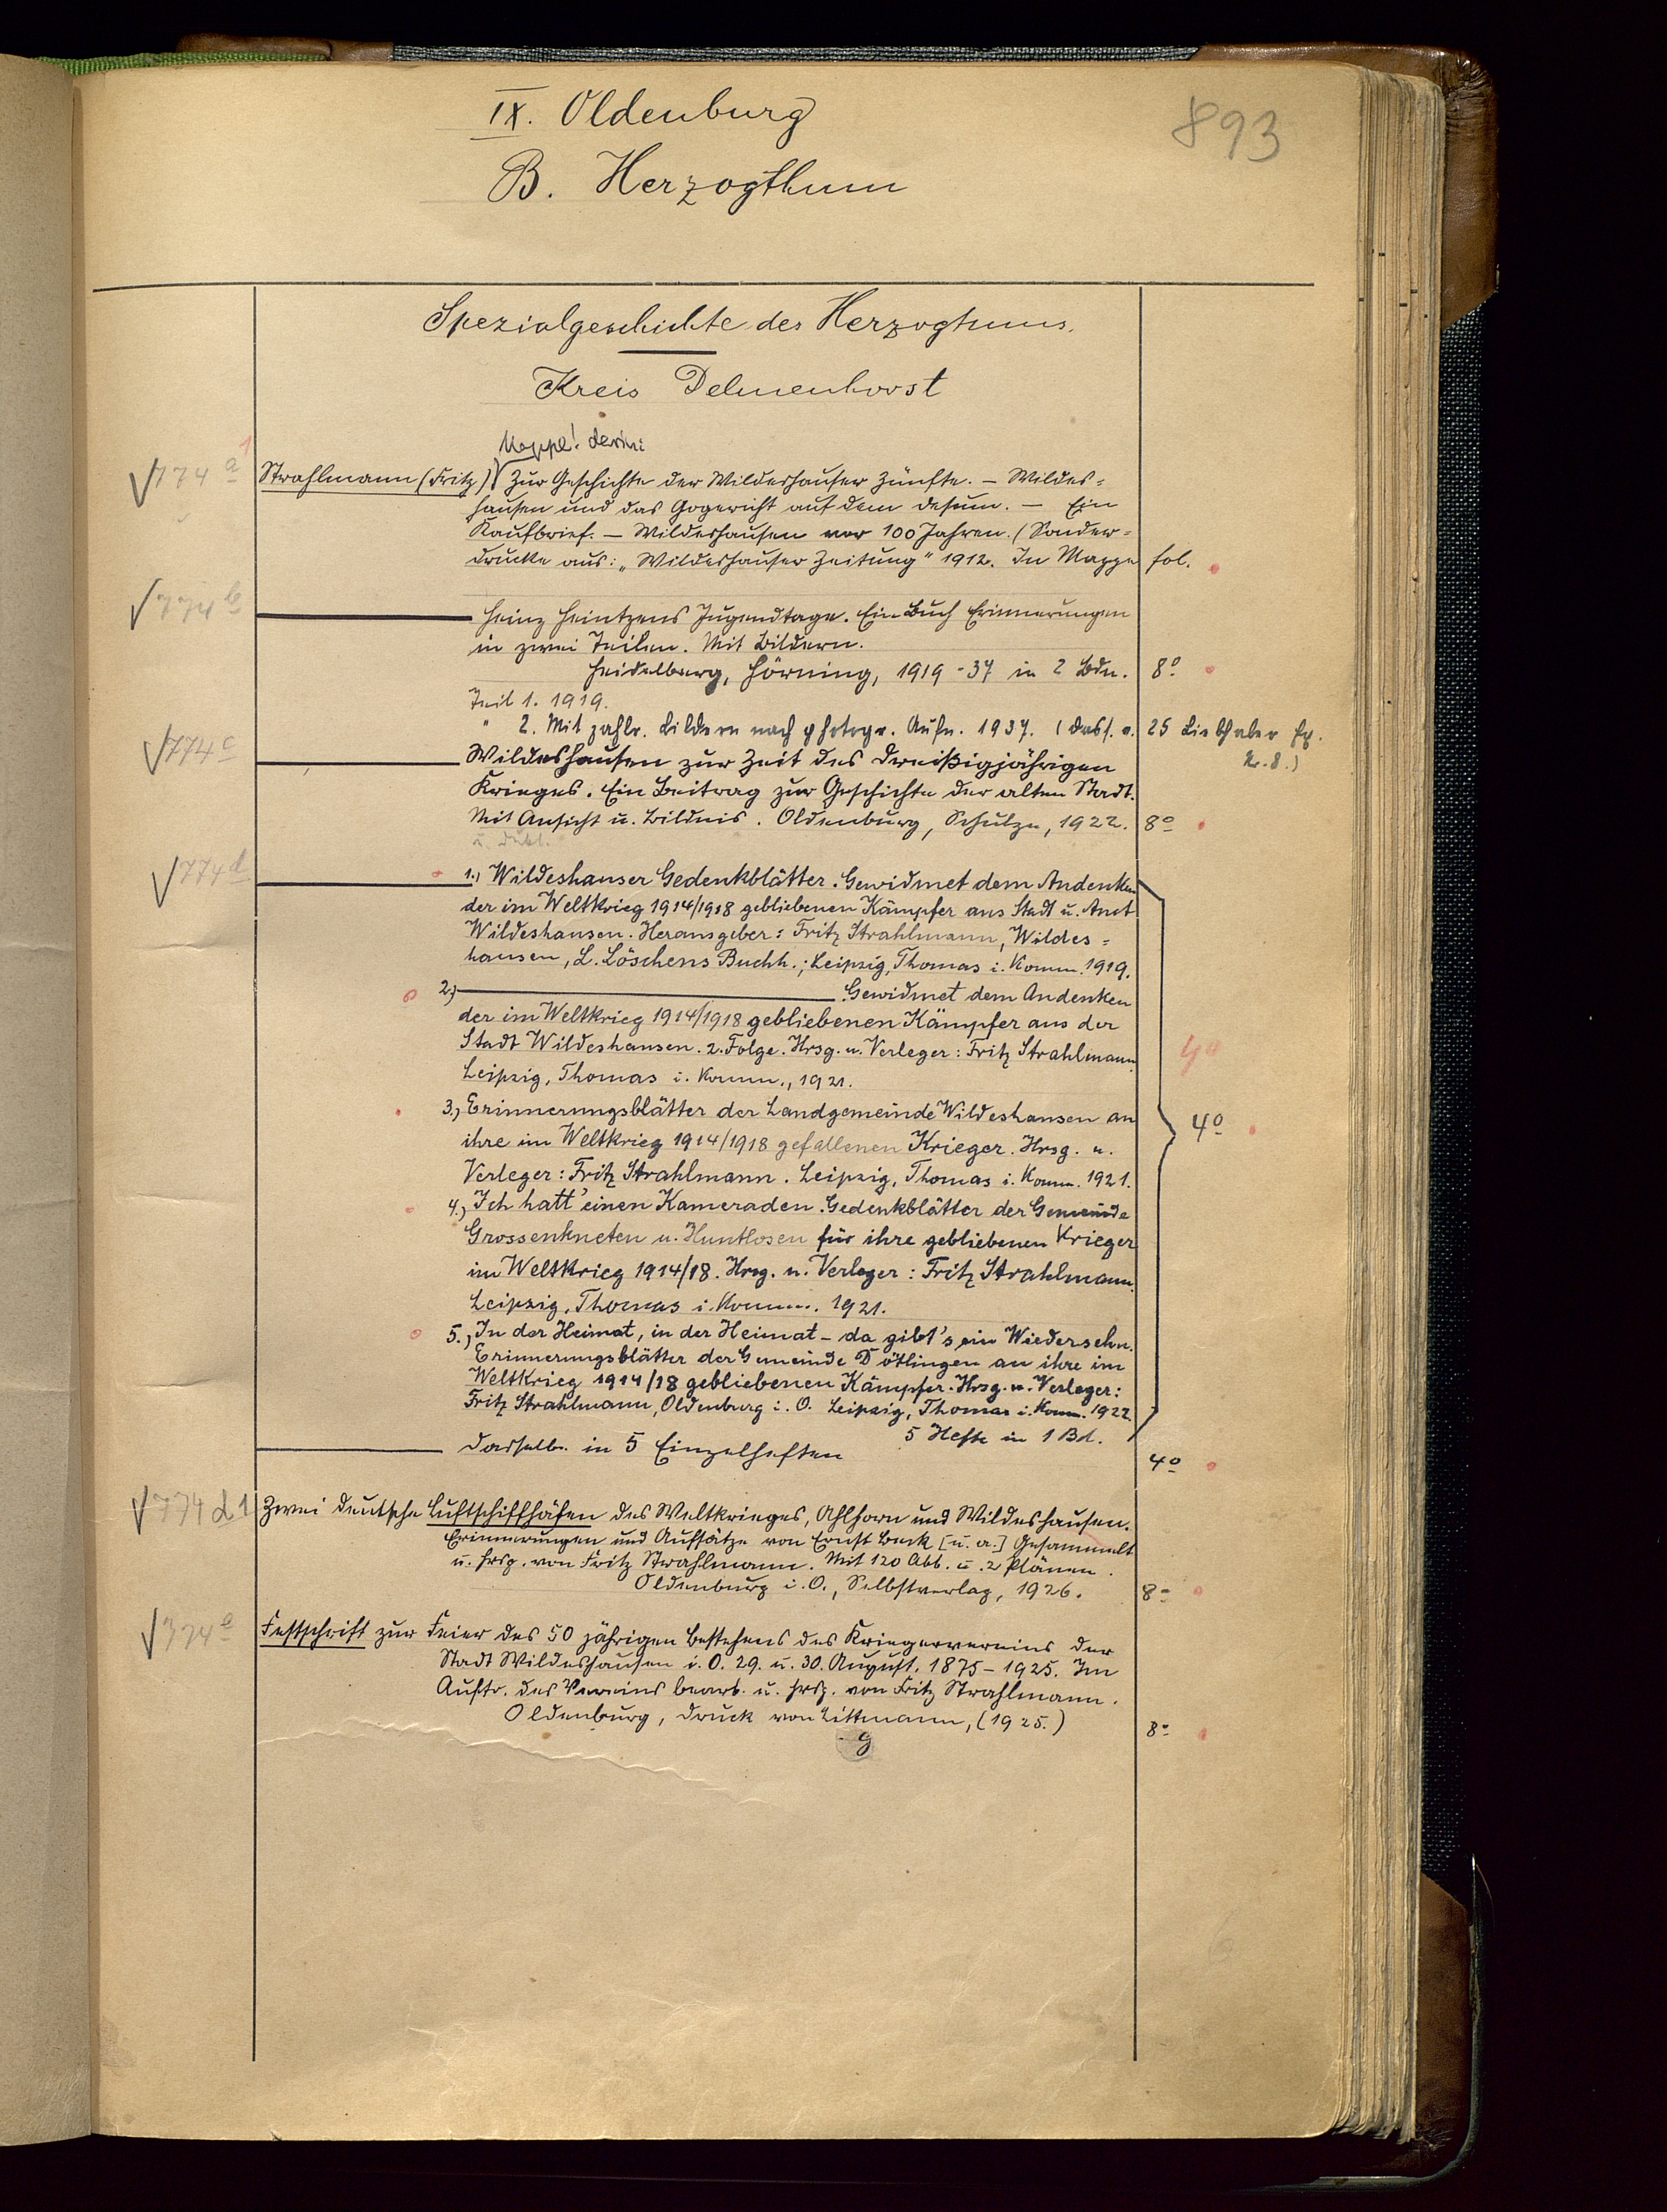 893
IX. Oldenburg
B. Herzogthum
Spezialgeschichte des Herzogtums.
Kreis Delmenhorst
Mappe! darin:
774 a 1
Strahlmann (Fritz) Zur Geschichte der Wildeshauser Zünfte. – Wildes=
hausen und das Gogericht auf dem Desum. – Ein
Kaufbrief. – Wildeshausen vor 100 Jahren. (Sonder=
drucke aus: „Wildeshauser Zeitung" 1912. In Mappe fol.
774 b
Heinz Heintzens Jugendtage. Ein Buch Erinnerungen
in zwei Teilen. Mit Bildern.
Heidelberg, Hörning, 1919-37 in 2 Bdn. 8º
Teil 1. 1919.
" 2. Mit zahlr. Bildern nach photogr. Aufn. 1937. (Dass. a. 25 Liebhaber Ex.
Nr. 8.)
774 c
Wildeshausen zur Zeit des dreißigjährigen
Krieges. Ein Beitrag zur Geschichte der alten Stadt.
Mit Ansicht u. Bildnis. Oldenburg, Schulze, 1922. 8º
u. Dubl.
774 d
1.) Wildeshauser Gedenkblätter. Gewidmet dem Andenken
der im Weltkrieg 1914/1918 gebliebenen Kämpfer aus Stadt u. Amt
Wildeshausen. Herausgeber: Fritz Strahlmann, Wildes=
hausen, L. Löschens Buchh.; Leipzig, Thomas i. Komm. 1919.
2.) Gewidmet dem Andenken
der im Weltkrieg 1914/1918 gebliebenen Kämpfer aus der
Stadt Wildeshausen. 2. Folge. Hrsg. u. Verleger: Fritz Strahlmann.
Leipzig, Thomas i. Komm., 1921.
3.) Erinnerungsblätter der Landgemeinde Wildeshausen an
ihre im Weltkrieg 1914/1918 gefallenen Krieger. Hrsg. u. 4º
Verleger: Fritz Strahlmann. Leipzig, Thomas i. Komm. 1921.
4.) Ich hatt' einen Kameraden. Gedenkblätter der Gemeinde
Grossenkneten u. Huntlosen für ihre gebliebenen Krieger
im Weltkrieg 1914/18. Hrsg. u. Verleger: Fritz Strahlmann.
Leipzig, Thomas i. Komm. 1921.
5.) In der Heimat, in der Heimat – da gibt's ein Wiedersehn.
Erinnerungsblätter der Gemeinde Dötlingen an ihre im
Weltkrieg 1914/18 gebliebenen Kämpfer. Hrsg. u. Verleger:
Fritz Strahlmann, Oldenburg i. O. Leipzig, Thomas i. Komm. 1922.
5 Hefte in 1 Bd.
Dasselbe in 5 Einzelheften 4º
774 d 1
Zwei deutsche Luftschiffhäfen des Weltkrieges, Ahlhorn und Wildeshausen.
Erinnerungen und Aufsätze von Ernst Beck [u. a.] Gesammelt
u. hrsg. von Fritz Strahlmann. Mit 120 Abb. u. 2 Plänen.
Oldenburg i. O., Selbstverlag, 1926. 8º
774 e
Festschrift zur Feier des 50 jährigen Bestehens des Kriegervereins der
Stadt Wildeshausen i. O. 29. u. 30. August. 1875-1925. Im
Auftr. des Vereins bearb. u. hrsg. von Fritz Strahlmann.
Oldenburg, Druck von Littmann, (1925.) 8º